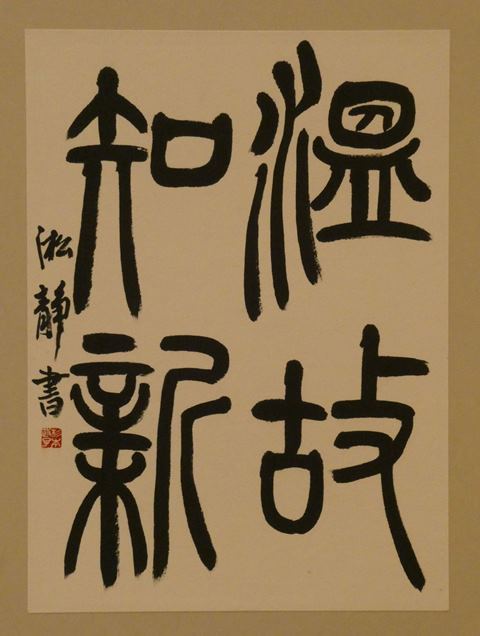 溫故
知新
淞靜書